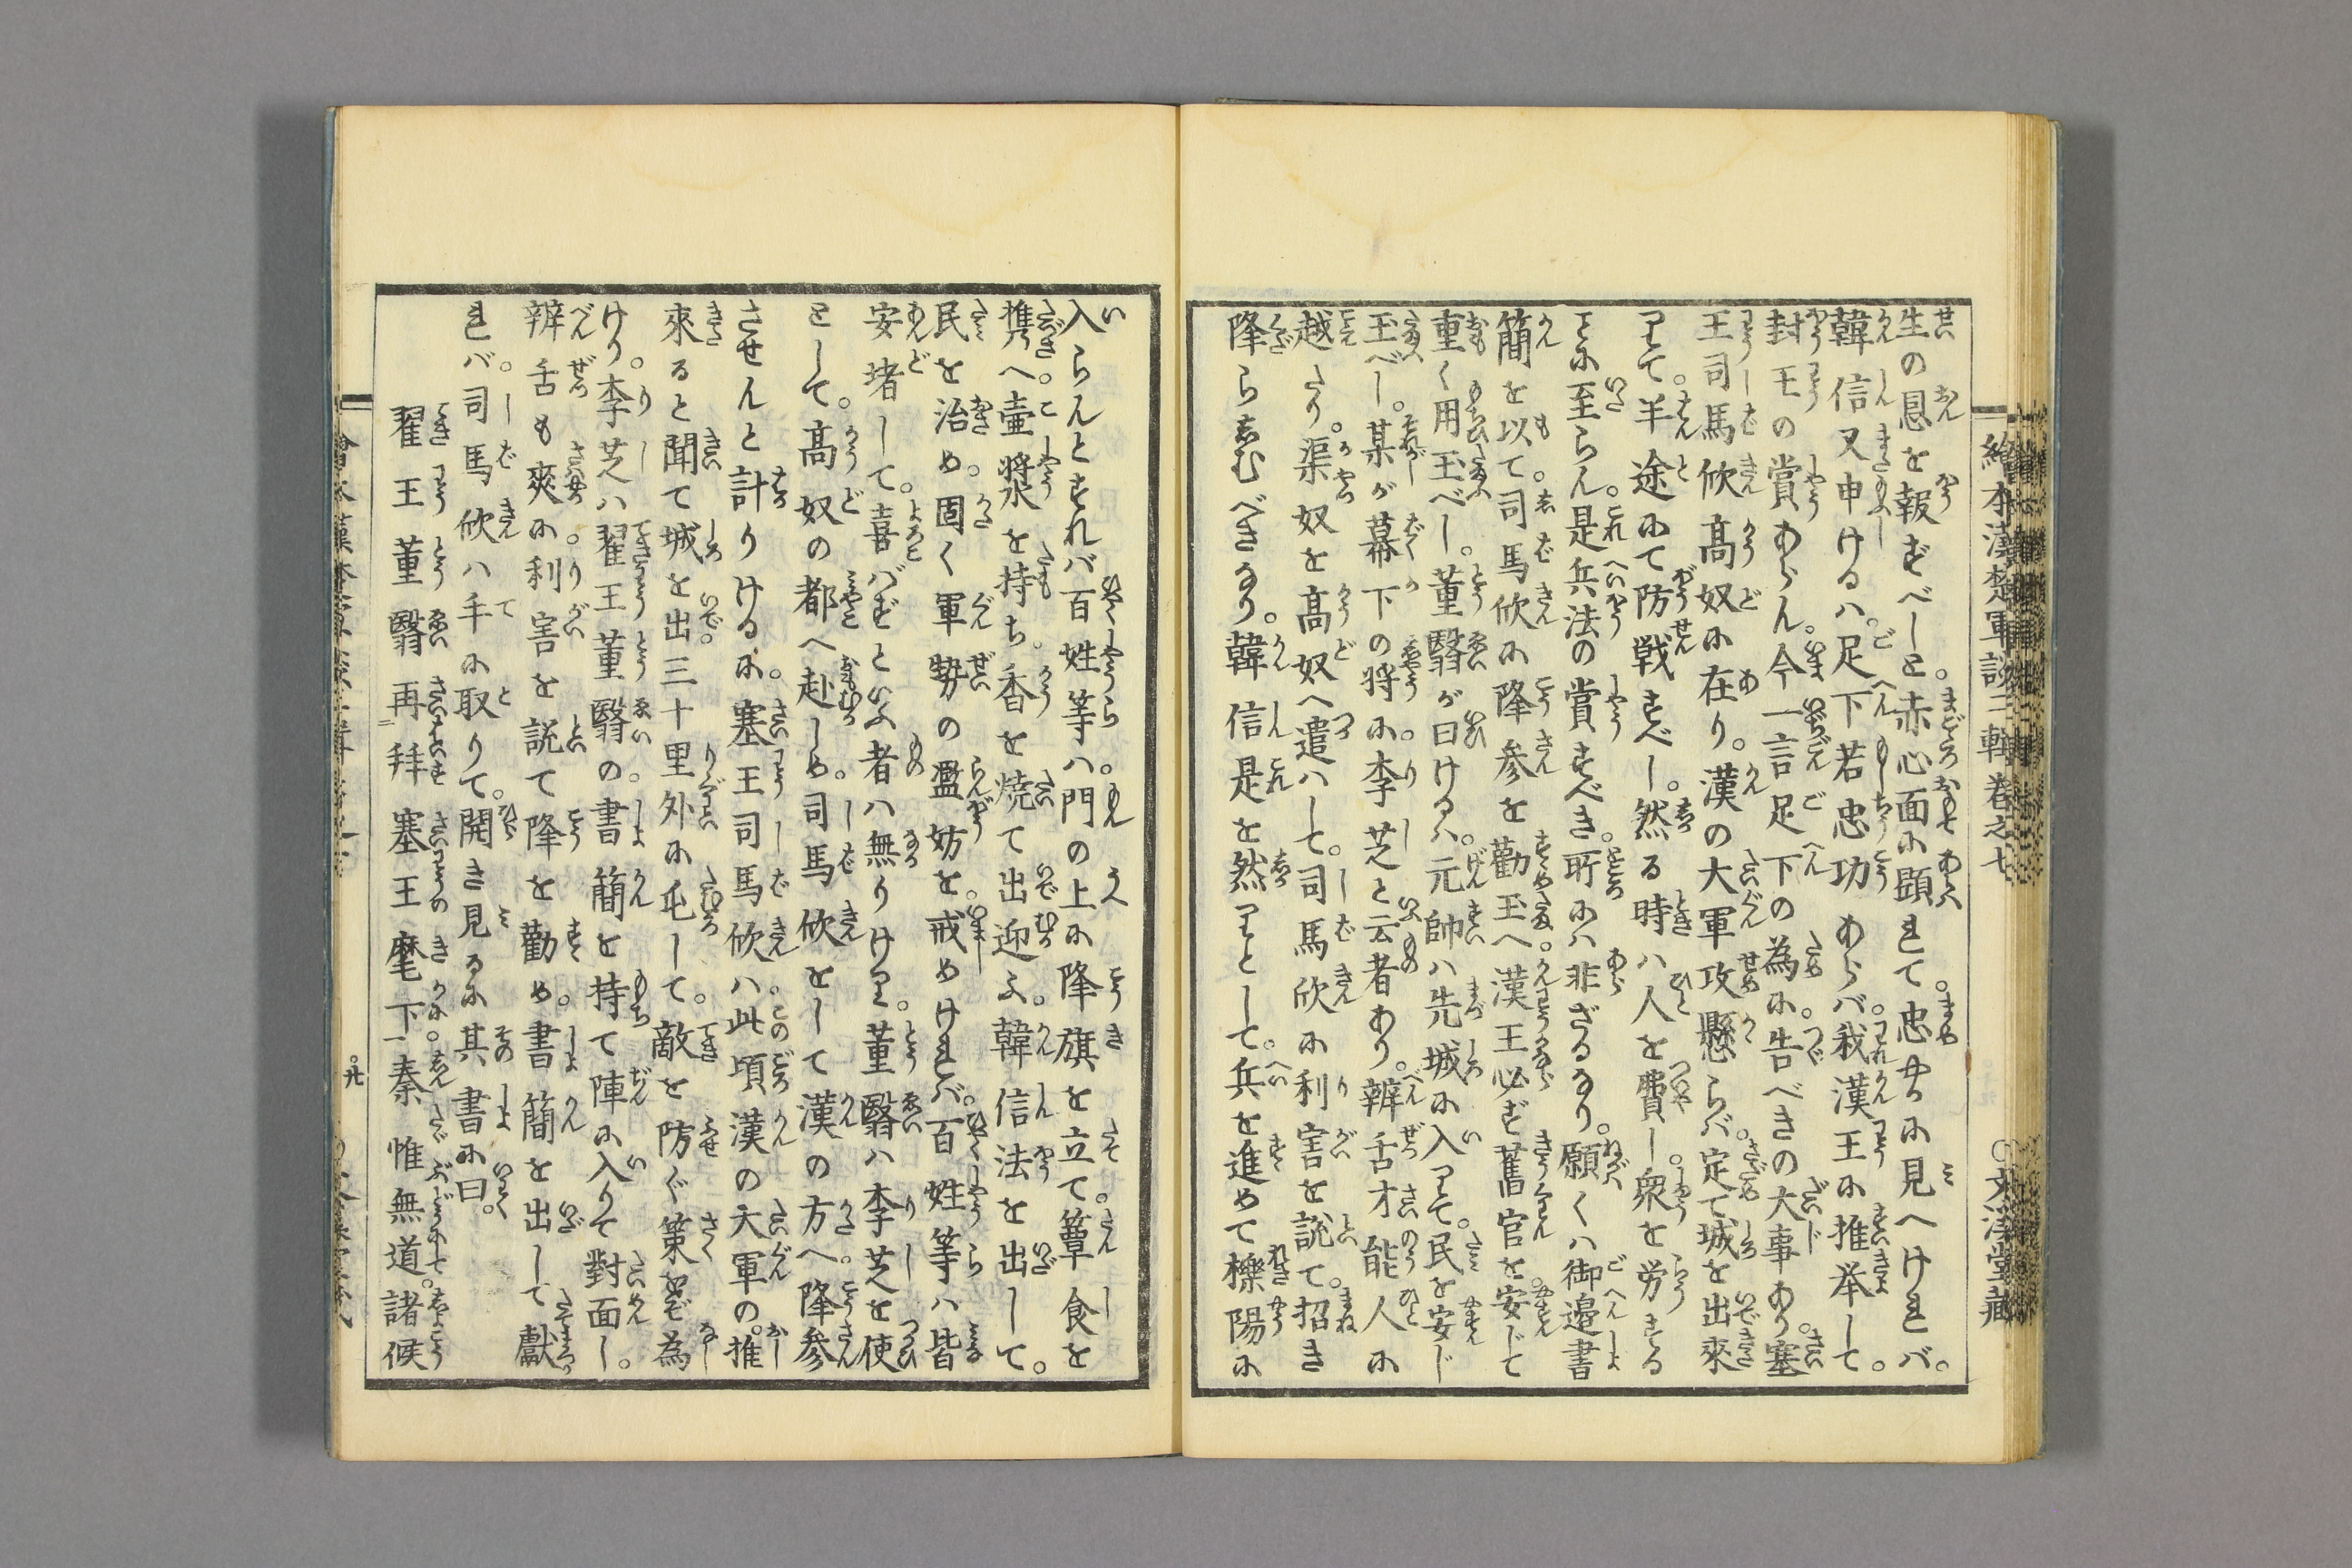 繪本漢楚軍談二輯卷之七
〇文溪堂藏
生の恩を報ずべしと赤心面に顕れて。忠やかに見へければ。
韓信又申けるハ。足下若忠功あらバ。我漢王に推挙して。
封王の賞あらん。今一言足下の為に。告べきの大事あり。塞
王司馬欣髙奴に在り。漢の大軍攻懸らバ。定て城を出來
りて。半途にて防戦すべし。然る時ハ人を費し。衆を労する
ことに至らん。是兵法の賞すべき。所にハ非ざるなり。願くハ御邉書
簡を以て。司馬欣に降参を勸玉へ。漢王必ず舊官を。安じて
重く用玉べし。董翳が曰けるハ。元帥ハ先城に入りて。民を安じ
玉べし。某が幕下の将に。李芝と云者あり。辨舌才能人に
越たり。渠奴を髙奴へ遣ハして。司馬欣に利害を説て。招き
降らしむべきなり。韓信是を然りとして。兵を進めて櫟陽に
入らんとすれバ百姓等ハ。門の上に降旗を立て。簟食を
携へ。壺漿を持ち。香を焼て出迎ふ。韓信法を出して。
民を治め。固く軍勢の濫妨を。戒めければ。百姓等ハ皆
安堵して。喜バずといふ者ハ無りけり。董翳ハ李芝を使
として。髙奴の都へ赴しめ。司馬欣をして漢の方へ。降参
させんと計りけるに。塞王司馬欣ハ。此頃漢の大軍の。推
來ると聞て城を出。三十里外に屯して。敵を防ぐ策をぞ為
けり。李芝ハ翟王董翳の。書簡を持て陣に入りて對面し。
辨舌も爽に。利害を説て降を勸め。書簡を出して獻
れバ。司馬欣ハ手に取りて。開き見るに其書に曰。
翟王董翳再拜塞王麾下。秦惟無道。諸候
〇九